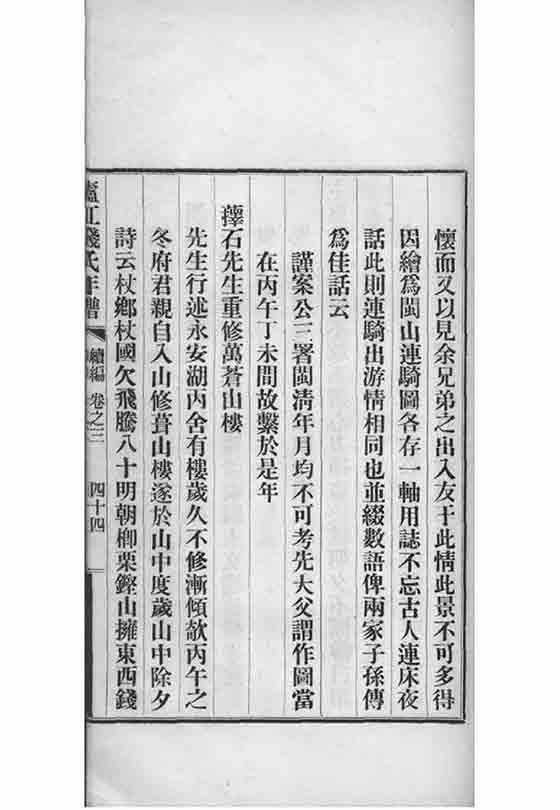 懷而又以見余兄弟之出入友于此情此景不可多得
因繪爲閩山連騎圖各存一軸用誌不忘古人連床夜
話此則連騎出游情相同也並綴數語俾兩家子孫傳
爲佳話云
謹案公三署閩清年月均不可考先大父謂作圖當
在丙午丁未間故繫於是年
蘀石先生重修萬蒼山樓
先生行述永安湖丙舍有樓歲久不修漸傾欹丙午之
冬府君親自入山修葺山樓遂於山中度歲山中除夕
詩云杖鄉杖國欠飛騰八十明朝柳栗鏗山擁東西錢
廬江錢氏年譜 續編 卷之三 四十四